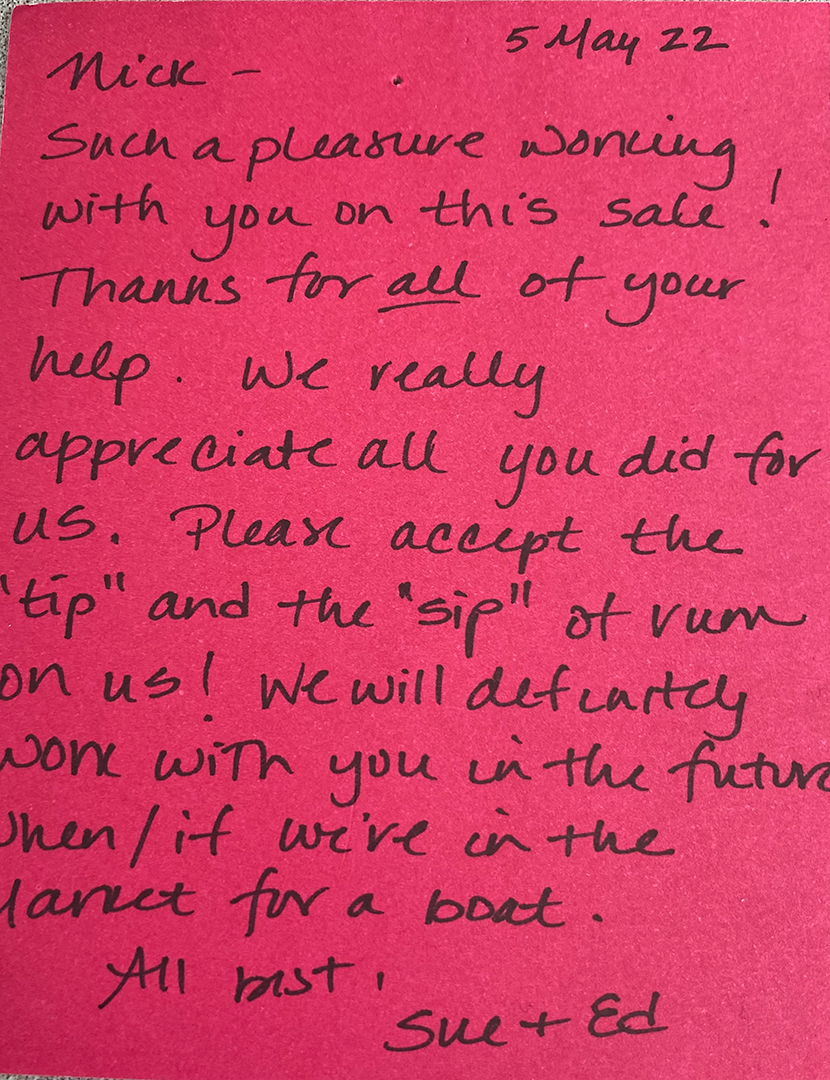 5 May 22
Nick -
Such a pleasure working
with you on this sale!
Thanks for all of your
help. We really
appreciate all you did for
us. Please accept the
"tip" and the "sip" of rum
on us! We will definitely
work with you in the future
when/if we're in the
Market for a boat.
All best,
Sue + Ed